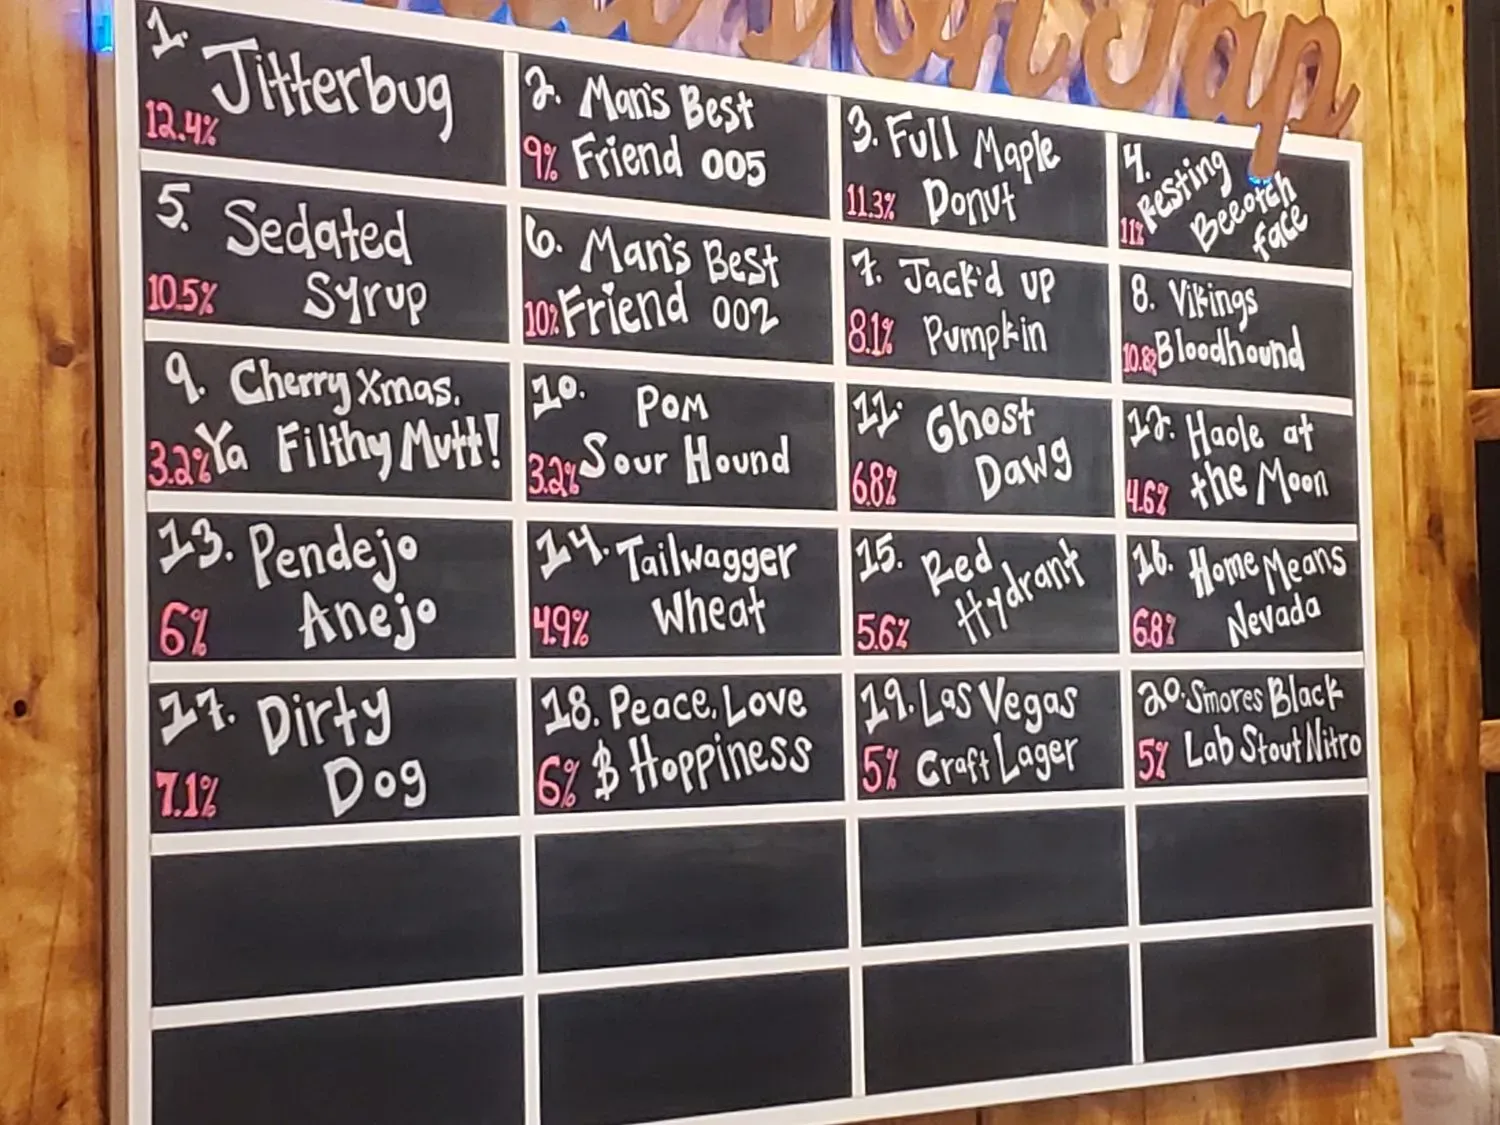 On Tap
1. Jitterbug
12.4%
2. Man's Best
9% Friend 005
3. Full Maple
11.3% Donut
4. Resting
11% Beeotch
face
5. Sedated
10.5% Syrup
6. Man's Best
10% Friend 002
7. Jack'd up
8.1% Pumpkin
8. Vikings
10.8% Bloodhound
9. Cherry Xmas,
3.2% Ya Filthy Mutt!
10. Pom
3.2% Sour Hound
11. Ghost
6.8% Dawg
12. Haole at
4.6% the Moon
13. Pendejo
6% Anejo
14. Tailwagger
4.9% Wheat
15. Red
5.6% Hydrant
16. Home Means
6.8% Nevada
17. Dirty
7.1% Dog
18. Peace, Love
6% $ Hoppiness
19. Las Vegas
5% Craft Lager
20. Smores Black
5% Lab Stout Nitro